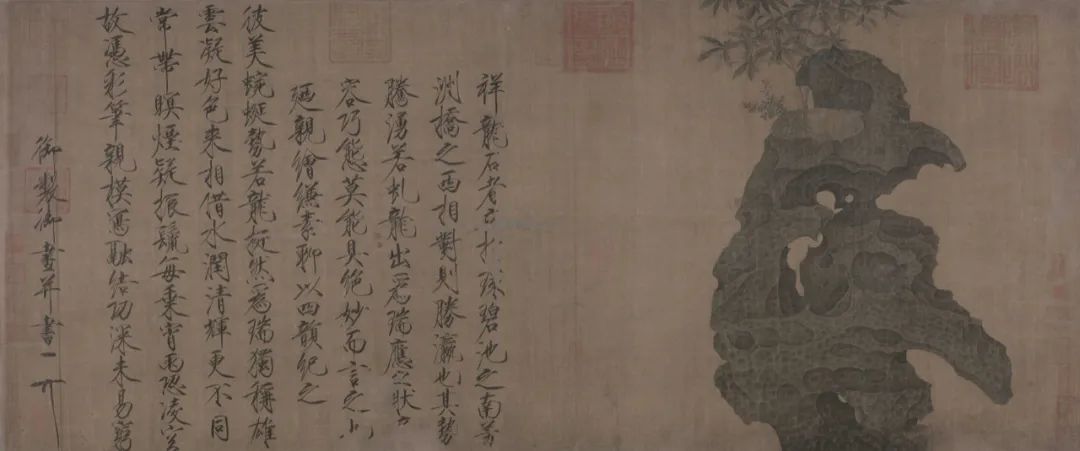 祥龍石者立於環碧池之南芳
洲橋之西相對則勝瀛也其勢
騰湧若虬龍出爲瑞應之狀奇
容巧態莫能具絕妙而言之也
廼親繪縑素聊以四韻紀之
彼美蜿蜒勢若龍挺然爲瑞獨稱雄
雲凝好色來相借水潤清輝更不同
常帶暝煙疑振鬣每乘宵雨恐凌空
故憑彩筆親模寫融結功深未易窮
御製御畫并書